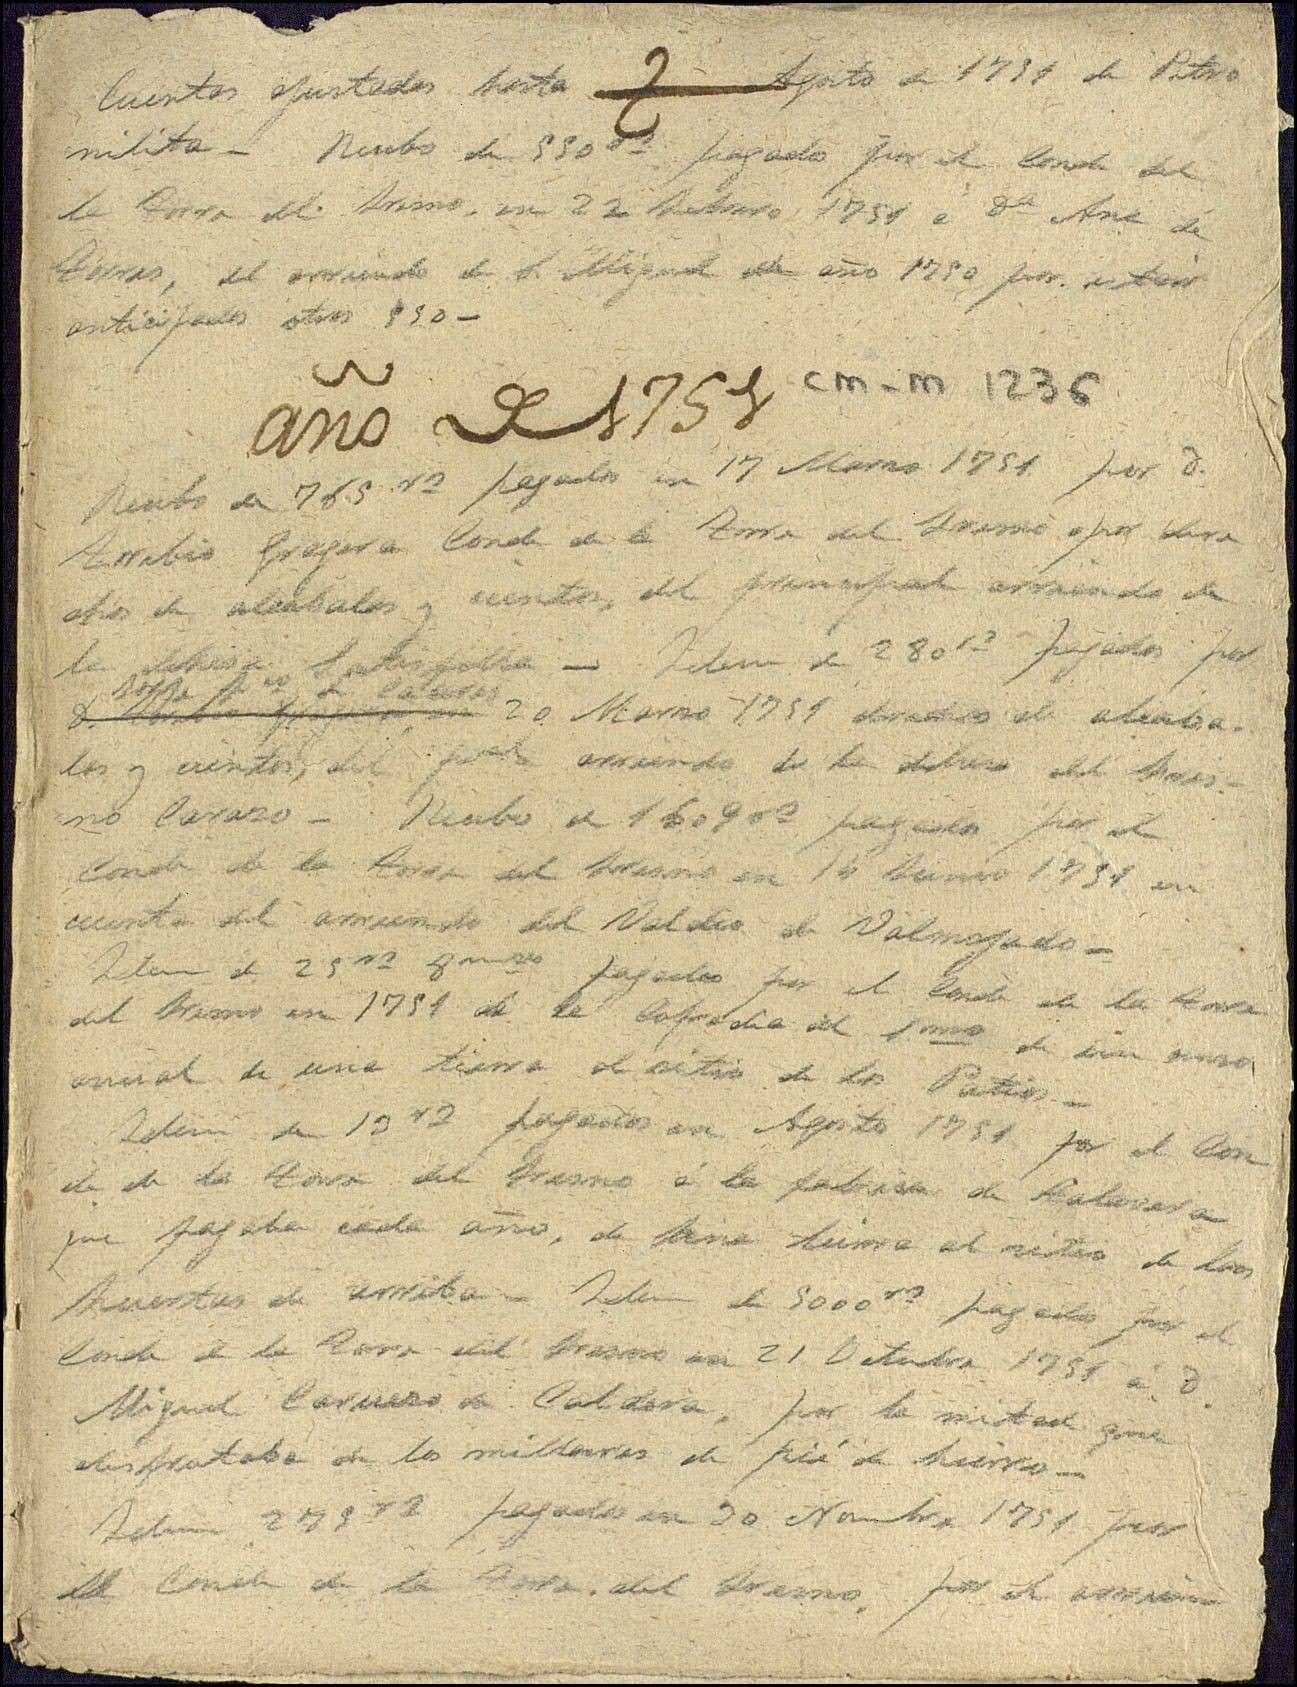 Cuentas ajustadas hasta 2 Agosto de 1751 de Petro
nilita - Recibo de 550 rs pagados por el Conde del
la Torre del Fresno. en 22 Febrero 1751 a Da Ana de
Torres, del arriendo de S. Miguel de año 1750 por estar
anticipados otros 550 -
año de 1751 cm-m 1236
Recibo de 765 rs pagados en 17 Marzo 1751 por D.
Toribio Gragera Conde de la Torre del Fresno por dere
chos de alcabalas y cientos, del principal arriendo de
la dehesa - Idem de 280 rs pagados por
D. 20 Marzo 1751 derechos de alcaba-
las y cientos, del pral arriendo de la dehesa del Fres-
no Carazo - Recibo de 1609 rs pagados por el
Conde de la Torre del Fresno en 16 Junio 1751 en
cuenta del arriendo del Valdio de Valmojado -
Idem de 25 rs 8 mrs pagados por el Conde de la Torre
del Fresno en 1751 de la Cofradia del Smo de un censo
anual de una tierra al sitio de los Patios -
Idem de 13 rs pagados en Agosto 1751 por el Con
de de la Torre del Fresno á la fabrica de Talavera
que pagaba cada año, de una tierra al sitio de las
Huertas de arriba - Idem de 5000 rs pagados por el
Conde de la Torre del Fresno en 21 Octubre 1751 a D.
Miguel de Caldera, por la mitad que
disfrutaba de los millares de pié de hierro -
Idem 275 rs pagados en 20 Novienbre 1751 por
el Conde de la Torre del Fresno, por el arrien